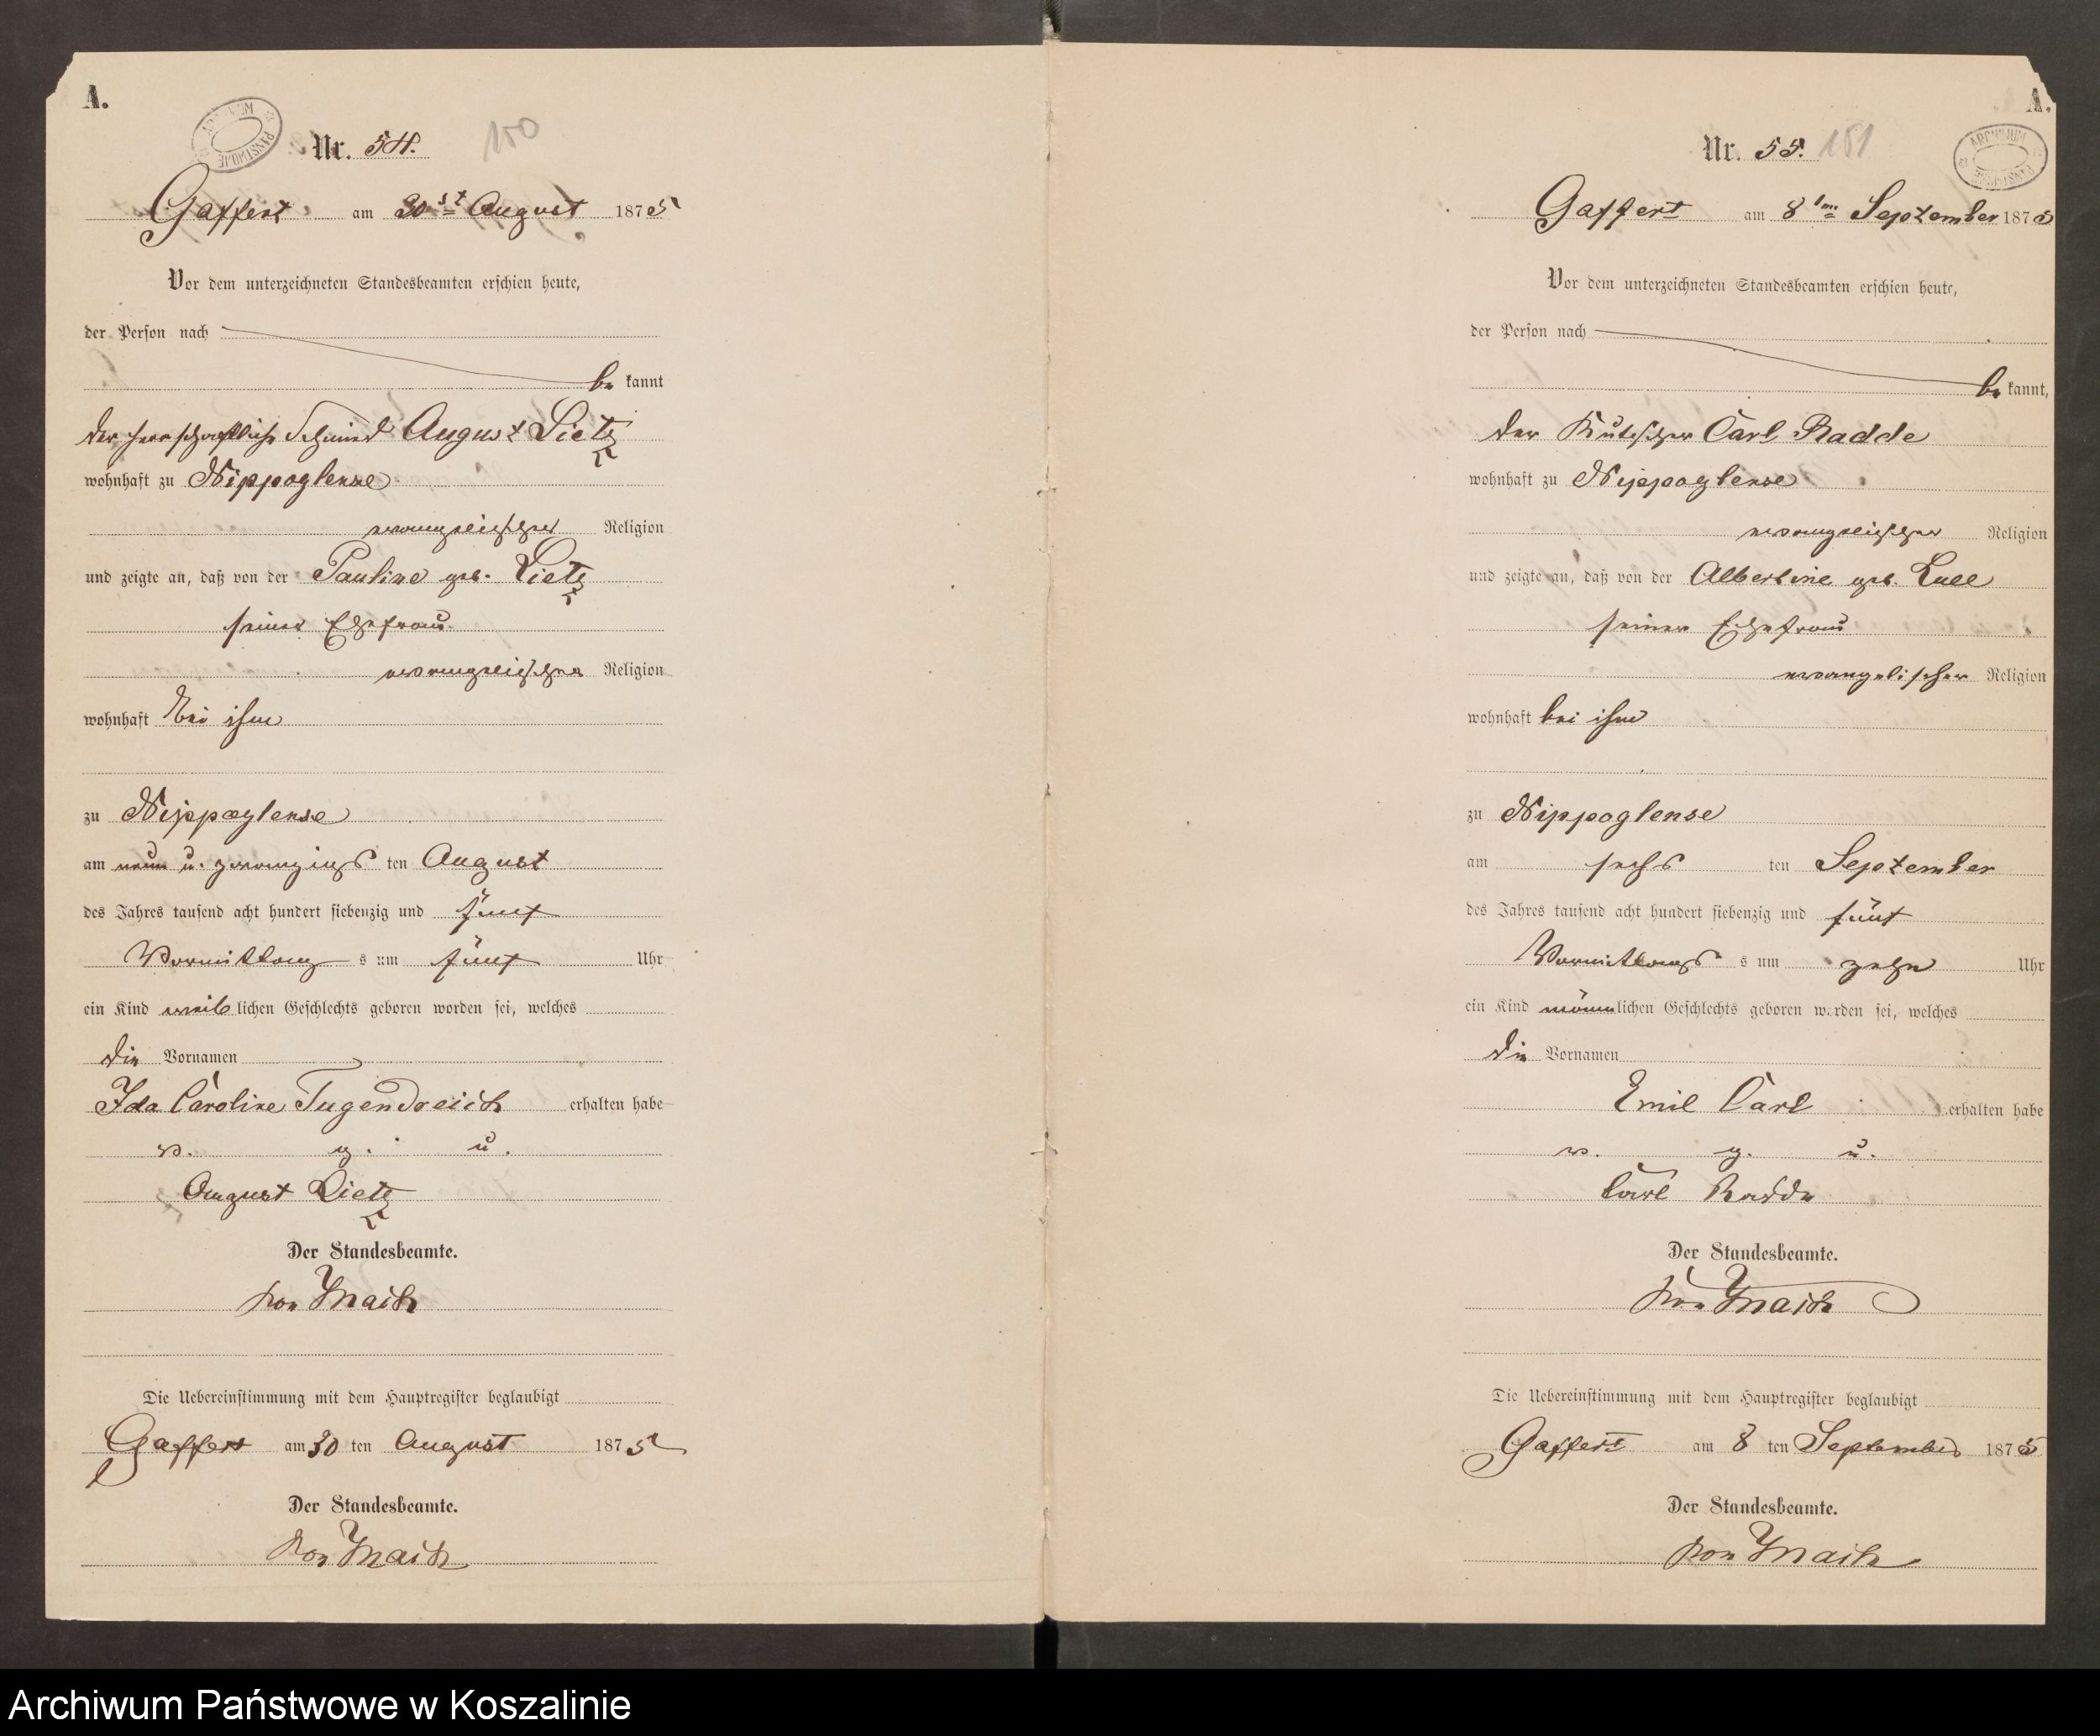 A.
ARCHIWUM PAŃSTWOWE
Nr. 54. 150
Gaffert am 30st August 1875
Vor dem unterzeichneten Standesbeamten erschien heute,
der Person nach
be kannt
der herrschaftliche Schmied August Lietz
wohnhaft zu Nippoglense
evangelischer Religion
und zeigte an, daß von der Pauline geb. Lietz
seiner Ehefrau
evangelischer Religion
wohnhaft bei ihm
zu Nippoglense
am neun u. zwanzigs ten August
des Jahres tausend acht hundert siebenzig und fünf
Vormittag s um fünf Uhr
ein Kind weib lichen Geschlechts geboren worden sei, welches
die Vornamen
Ida Caroline Tugendreich erhalten habe
v. g. u.
August Lietz
Der Standesbeamte.
von
Die Uebereinstimmung mit dem Hauptregister beglaubigt
Gaffert am 30 ten August 1875
Der Standesbeamte.
von
A.
ARCHIWUM PAŃSTWOWE
Nr. 55. 151
Gaffert am 8ten September 1875
Vor dem unterzeichneten Standesbeamten erschien heute,
der Person nach
be kannt,
der Kutscher Carl Radde
wohnhaft zu Nippoglense
evangelischer Religion
und zeigte an, daß von der Albertine geb.
seiner Ehefrau
evangelischer Religion
wohnhaft bei ihm
zu Nippoglense
am sechs ten September
des Jahres tausend acht hundert siebenzig und fünf
Vormittags s um zehn Uhr
ein Kind männlichen Geschlechts geboren worden sei, welches
die Vornamen
Emil Carl erhalten habe
v. g. u.
Carl Radde
Der Standesbeamte.
von
Die Uebereinstimmung mit dem Hauptregister beglaubigt
Gaffert am 8 ten September 1875
Der Standesbeamte.
von
Archiwum Państwowe w Koszalinie